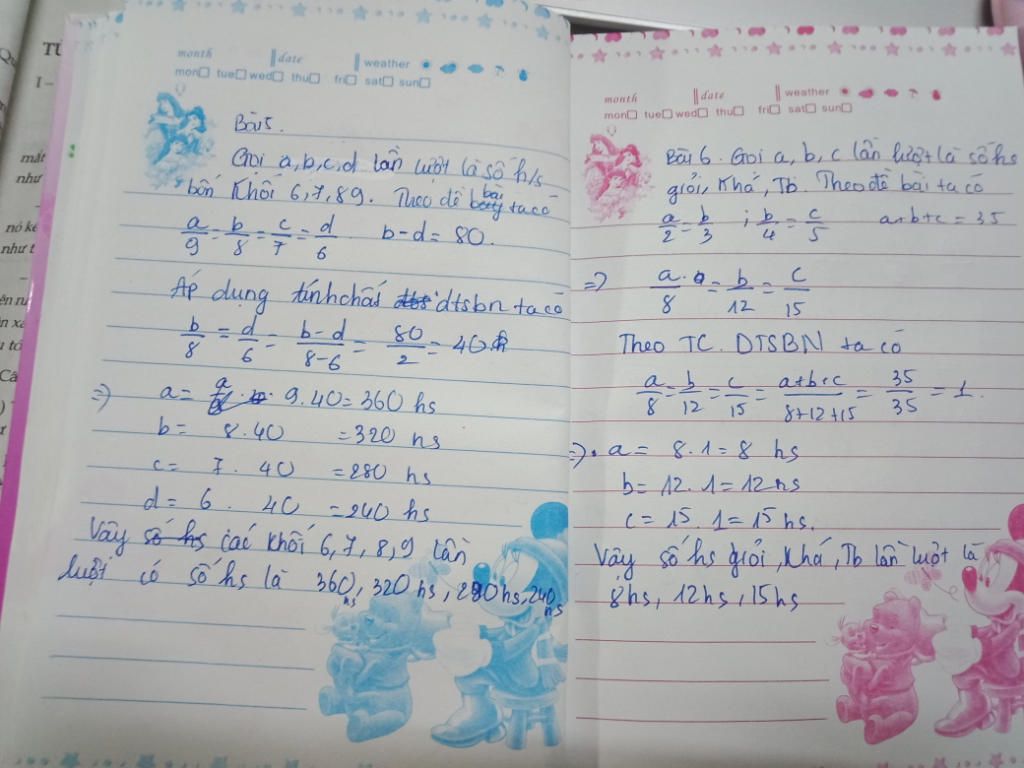 TÙ
I –
mắt
như
nó kế
như t
month date weather
mon tue wed thu fri sat sun
Bài 5.
Gọi a, b, c, d lần lượt là số h/s
bốn khối 6, 7, 8 9. Theo đề bài ta có
a/9 = b/8 = c/7 = d/6 b - d = 80.
Áp dụng tính chất dtsbn ta có
b/8 = d/6 = b-d/8-6 = 80/2 = 40
=> a = 9.40 = 360 hs
b = 8.40 = 320 hs
c = 7.40 = 280 hs
d = 6 40 = 240 hs
Vậy số hs các khối 6, 7, 8, 9 lần
lượt có số hs là 360 hs, 320 hs, 280 hs, 240 hs
month date weather
mon tue wed thu fri sat sun
Bài 6. Gọi a, b, c lần lượt là số hs
giỏi, Khá, Tb. Theo đề bài ta có
a/2 = b/3 ; b/4 = c/5 a+b+c = 35
=> a/8 = b/12 = c/15
Theo TC. DTSBN ta có
a/8 = b/12 = c/15 = a+b+c/8+12+15 = 35/35 = 1.
=> a = 8.1 = 8 hs
b = 12.1 = 12 hs
c = 15.1 = 15 hs.
Vậy số hs giỏi, Khá, Tb lần lượt là
8hs, 12hs, 15hs